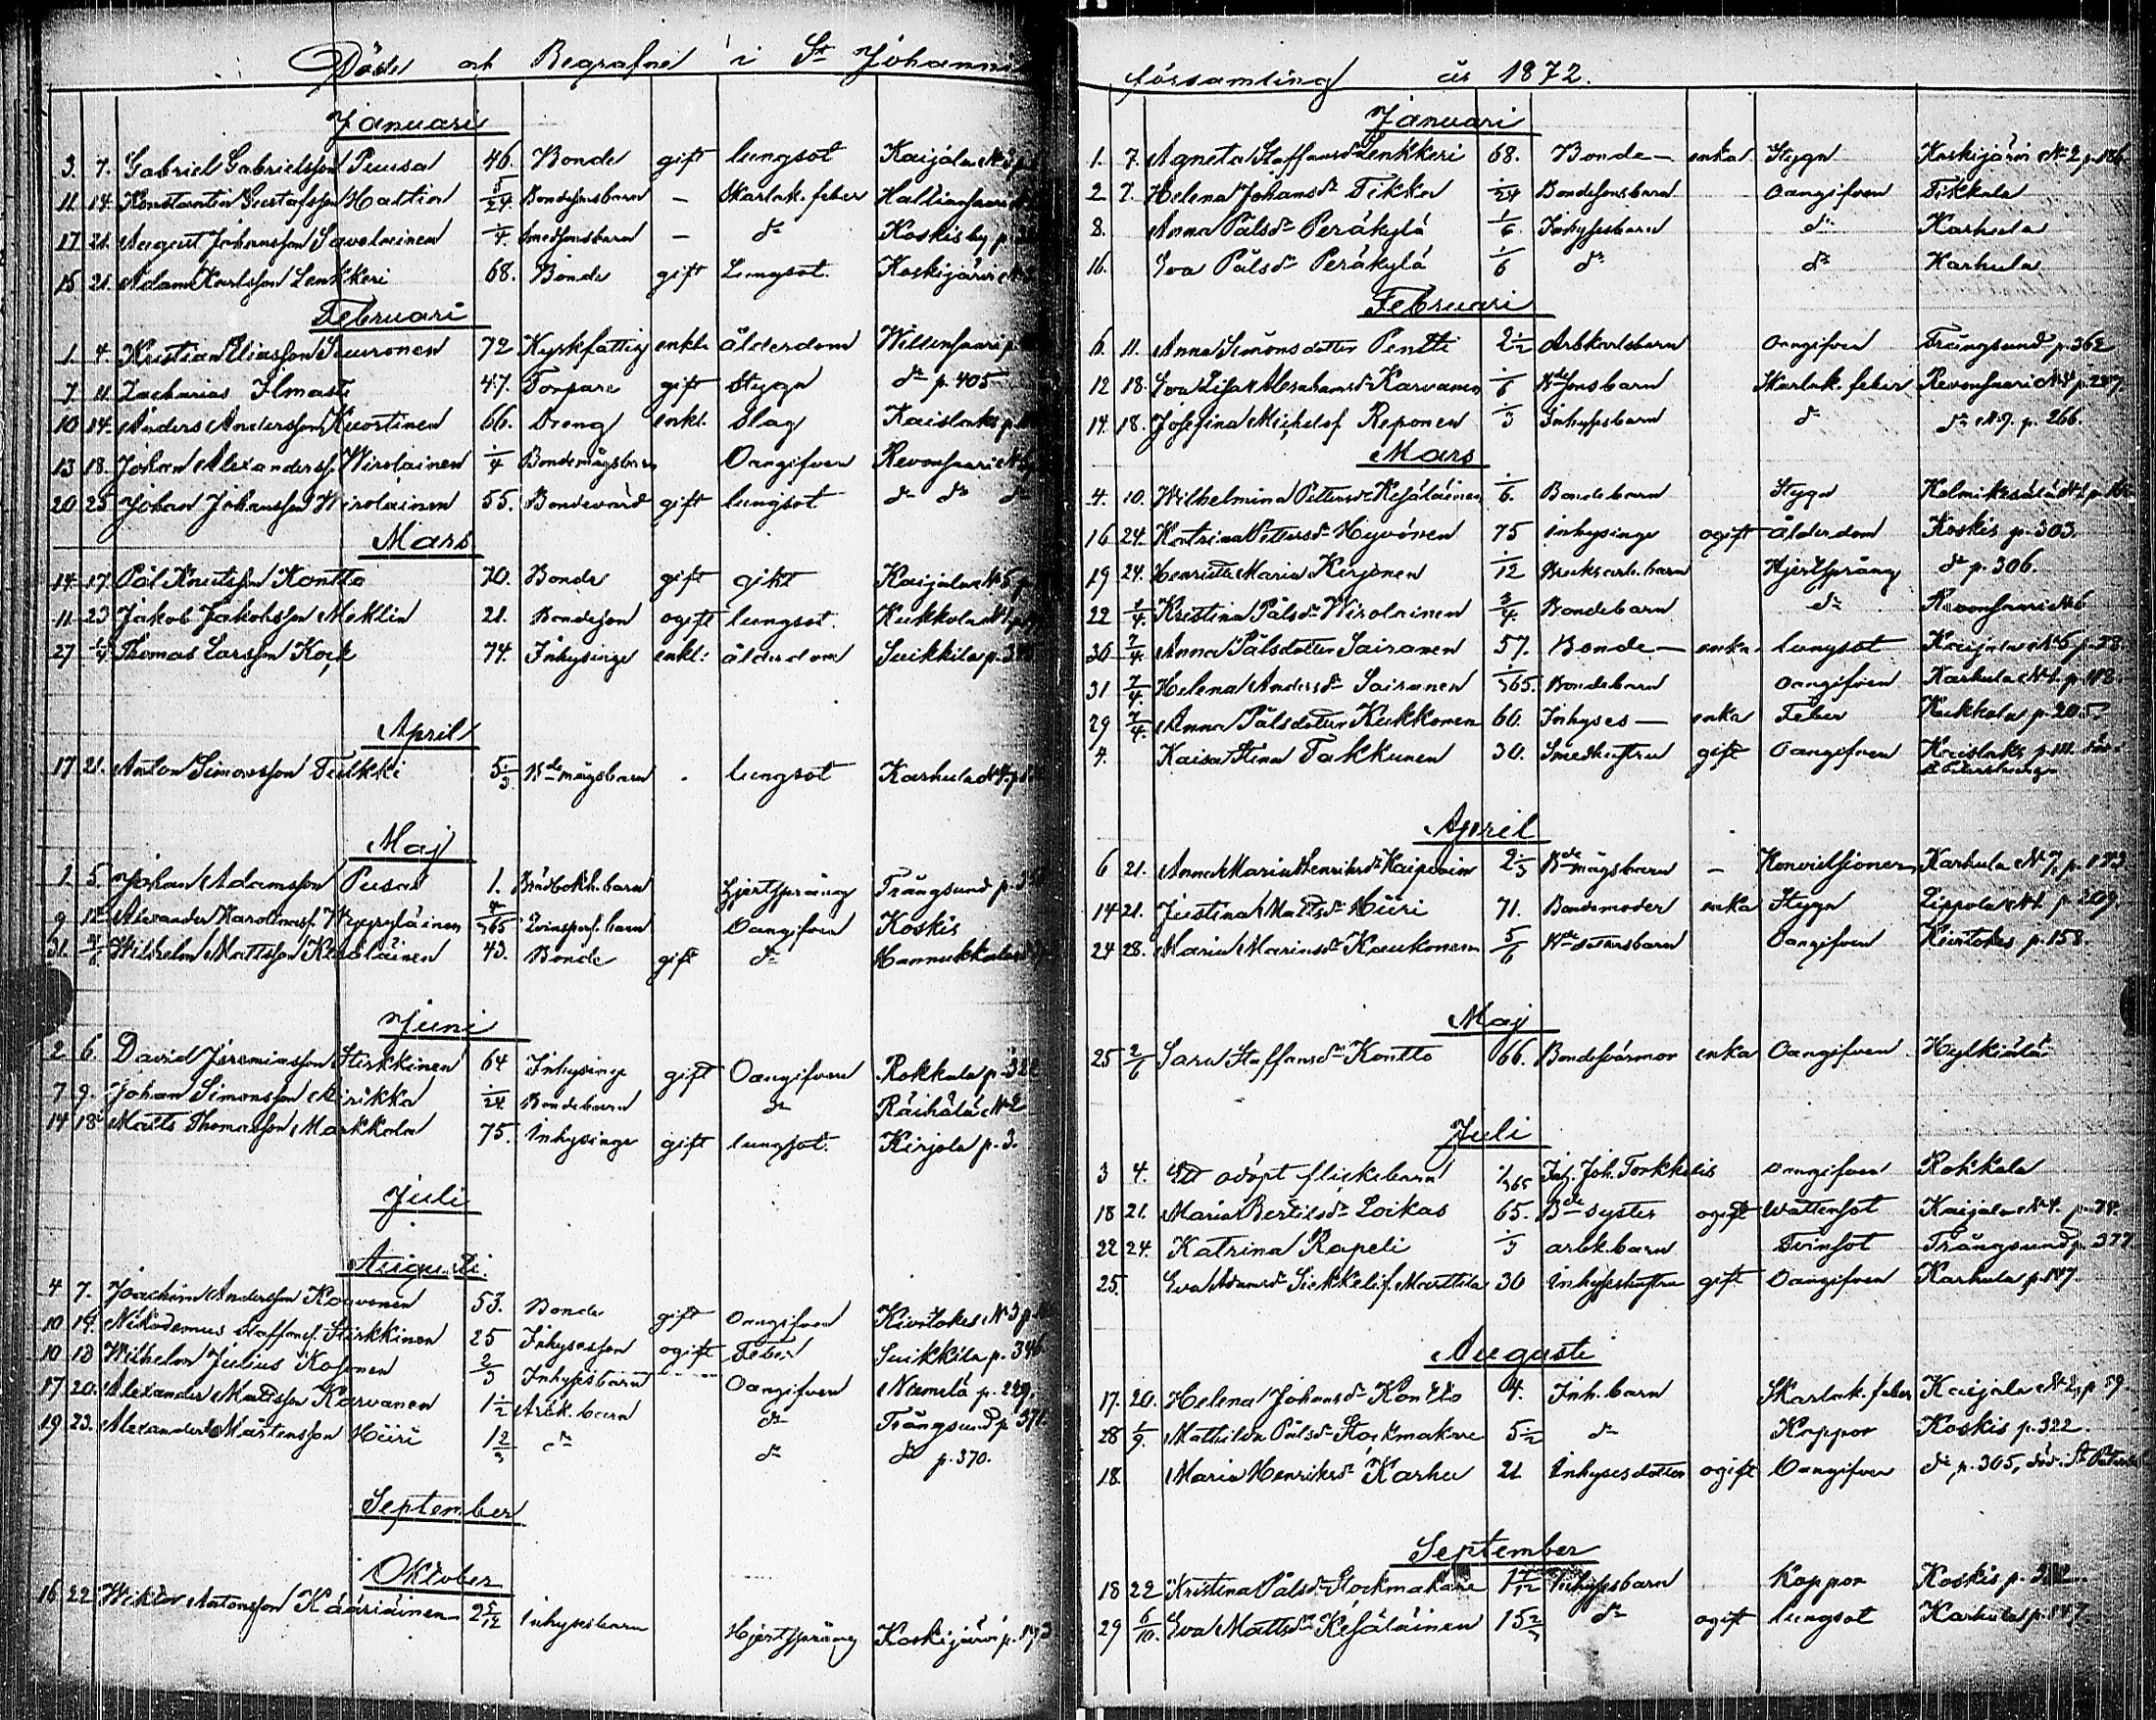 Döde och Begrafne i St Johannis
Januari
3. 7. Gabriel Gabrielsson Puusa 46. Bonde gift lungsot Kaijala N 3
11 14. Konstantin Gustafsson Haltia 5/24. Bondesonsbarn - Skarlak. feber
17 21. August Johansson Savolainen 1/4. Smedsonsbarn - do Koskis by
15 21. Adam Karlsson Lenkkeri 68. Bonde gift Lungsot. Koskijärvi
Februari
1. 4. Kristian Eliasson Suuronen 72 Kyrkfattig enkl. ålderdom
7 11. Zacharias Ilmast 47. Torpare gift Stygn do p. 405
10 14. Anders Andersson Kuortinen 66. Dreng enkl. Slag Kaislaks
13 18. Johan Alexanderss. Wirolainen 1/4 Bondemågsbarn Oangifven Revonsaari
20 25 Johan Johansson Wirolainen 55. Bondevärd gift lungsot do do do
Mars
14 17. Pål Knutsson Kontto 70. Bonde gift gikt Kaijala N 5
11 23 Jakob Jakobsson Meklin 21. Bondeson ogift lungsot. Kukkola N 1
27 1/4 Thomas Larsson Kock 74. Inhysinge enkl. ålderdom Suikkila
April
17 21. Anton Simonsson Tulkki 5/3 Bde mågsbarn - lungsot Karhula
Maj
1. 5. Johan Adamsson Pusa 1. barn Hjertsprång Trångsund
9 12 Alexander 4/365 barn Oangifven Koskis
31. 2/6 Wilhelm Mattsson Kesäläinen 43. Bonde gift do Hannukkala
Juni
2 6. David Jeremiasson Stirkkinen 64 Inhysinge gift Oangifven Rokkala
7 9. Johan Simonsson Mirikka 1/24 Bondebarn do Räihälä N 2
14 18 Matts Thomasson Markkola 75. Inhysinge gift lungsot. Kirjola p. 3.
Juli
Augusti.
4 7. Joachim Andersson Korvonen 53. Bonde gift Oangifven Kiurtokes N 3
10 14. Nikodemus Staffanss. Stirkkinen 25 Inhysesson ogift Feber Suikkila p. 346.
10 18 Wilhelm Julius Kosonen 2/3 Inhysesbarn Oangifven Niemelä p. 229.
17 20. Alexander Mattsson Karvanen 1 1/2 Arbk. barn do Trångsund p. 371.
19 23. Alexander Mårtensson Hüiri 1 2/3 do do do p. 370.
September
Oktober
16 22 Wiktor Antonsson Kääriäinen 2 5/12 Inhysesbarn Hjertsprång Koskijärvi p. 193
församling år 1872.
Januari
1. 7. Agneta Staffansdr Lenkkeri 68. Bonde- enka Stygn Koskijärvi N 2 p. 186.
2 7. Helena Johansdr Tikka 1/24 Bondesonsbarn Oangifven Tikkala
8. Anna Pålsdr Peräkylä 1/6. Inhysesbarn do Karhula
16. Eva Pålsdr Peräkylä 1/6 do do Karhula
Februari
6. 11. Anna Simonsdotter Pentti 2 1/2 Arbkarlsbarn Oangifven Trångsund p. 362
12 18. Eva Lisa Abrahamsdr Karvanen 1/6 Bdesonsbarn Skarlak. feber Revonsaari N 4 p. 247
14. 18. Josefina Michelsd. Reponen 1/3 Inhysesbarn do do N 9. p. 266.
Mars
4. 10. Wilhelmina Pettersdr Kesäläinen 1/6. Bondebarn Stygn
16 24. Katrina Pettersdr Hyvönen 75 Inhysinge ogift ålderdom Koskis p. 303.
19 24. Henrietta Maria Kirjonen 1/12 barn Hjertsprång do p. 306.
22 1/4. Kristina Pålsdr Wirolainen 3/4. Bondebarn do Revonsaari N 6
30 7/4. Anna Pålsdotter Sairanen 57. Bonde- enka lungsot Kaijala N 5 p. 38.
31 7/4. Helena Andersdr Sairanen 1/365. Bondebarn Oangifven Karhula N 1. p. 118.
29 7/4. Anna Pålsdotter Kukkonen 60. Inhyses- enka Feber Kukkola p. 205.
4. Kaisa Stina Takkunen 30. Smedhustru gift Oangifven Kaislaks p. 111. död i St Petersburg
April
6 21. Anna Maria Henriksdr Kaipiain 2 1/3 Bde mågsbarn - Konvulsioner Karhula N 7, p. 123
14 21. Justina Mattsdr Hüiri 71. Bondemoder enka Stygn Lippola N 1. p. 209.
24 28. Maria Mariasdr Kaukonen 5/6 Bde dotters barn Oangifven Kiurtokes p. 158.
Maj
25 2/6 Sara Staffansdr Kontto 66. Bondesvärmor enka Oangifven Hylkiälä
Juli
3 4. Ett odöpt flickebarn 1/365 Inh. Joh. Torkkelis Oangifven Rokkala
18 21. Maria Bertilsdr Loikas 65. Bde syster ogift Wattensot Kaijala N 4. p. 34.
22 24. Katrina Rapeli 1/3 arbk. barn Tvinsot Trångsund p. 377
25. Eva Adamsdr Sikkelif. Marttila 30 Inhyseshustru gift Oangifven Karhula p. 147.
Augusti
17. 20. Helena Johansdr Kontto 4. Inh. barn Skarlak. feber Kaijala N 2, p. 59.
28 1/9. Mathilda Pålsdr Stockmakare 5 1/2 do Koppor Koskis p. 322.
18. Maria Henriksdr Karhu 21 Inhysesdotter ogift Oangifven do p. 305, död i St Petersb
September
18 22 Kristina Pålsdr Stockmakare 1 7/12 Inhysesbarn Koppor Koskis p. 322.
29 6/10. Eva Mattsdr Kesäläinen 15 2/3 do ogift lungsot Karhula p. 147.